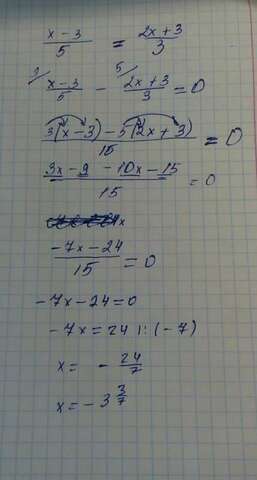 x-3/5 = 2x+3/3
3/ x-3/5 - 5/ 2x+3/3 = 0
3(x-3)-5(2x+3)/15 = 0
3x-9-10x-15/15 = 0
-7x-24/15 = 0
-7x-24=0
-7x=24 |:(-7)
x= - 24/7
x= -3 3/7